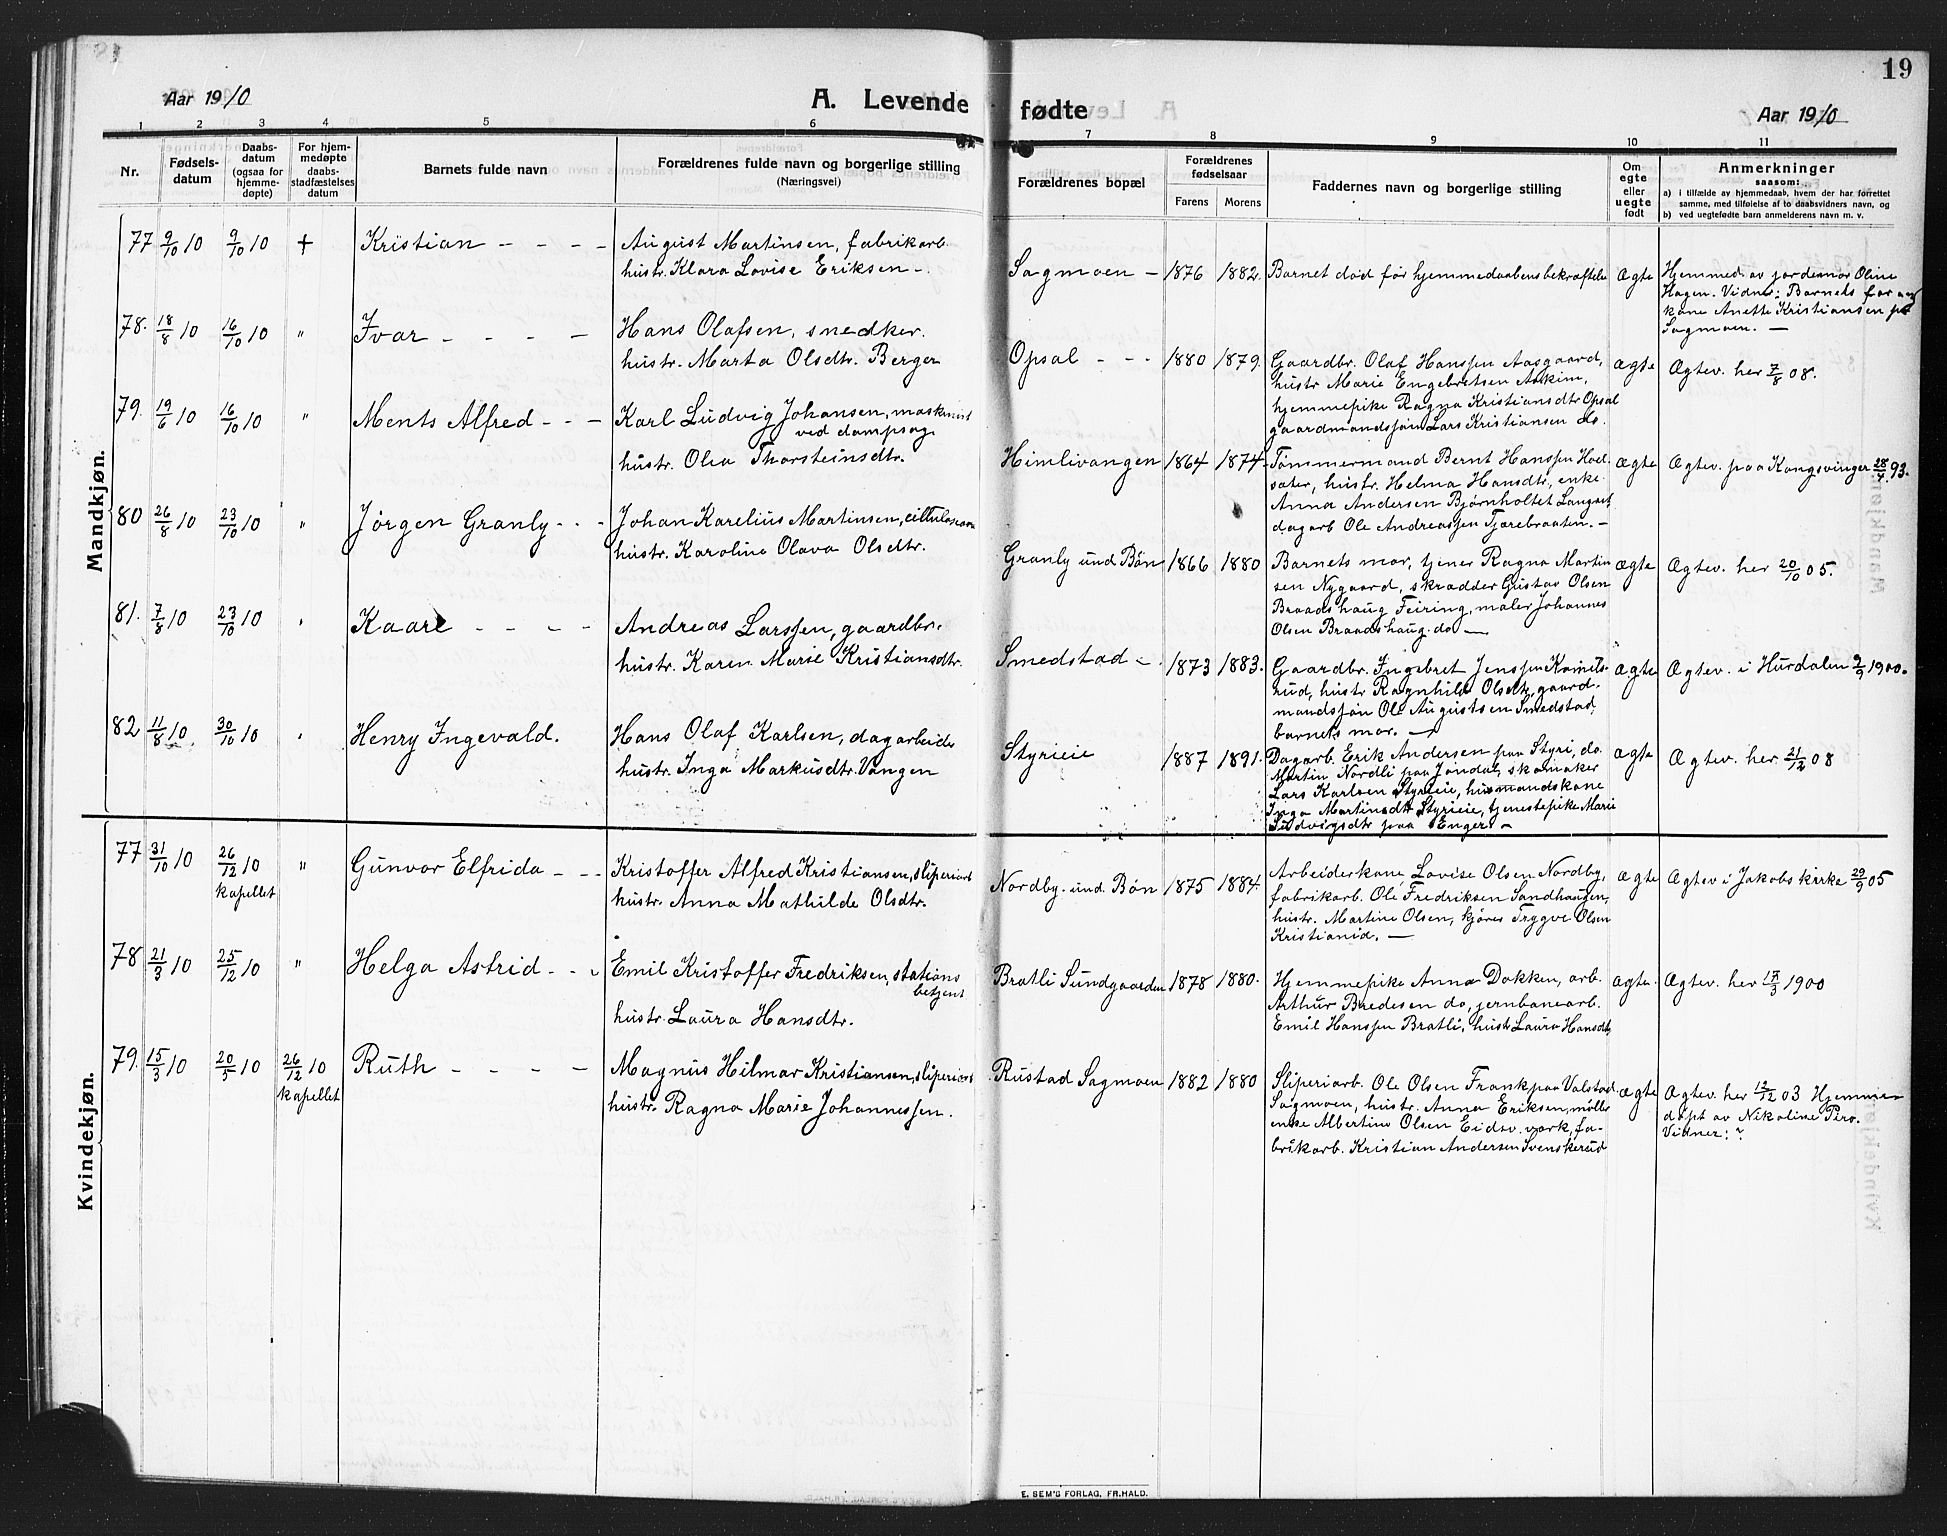 19
Aar 1910
A. Levende fødte
Aar 1910
1 2 3 4 5 6 7 8 9 10 11
Nr.
Fødsels-
datum
Daabs-
datum
(ogsaa for
hjemme-
døpte)
For hjem-
medøpte
daabs-
stadfæstelses
datum
Barnets fulde navn
Forældrenes fulde navn og borgerlige stilling
(Næringsvei)
Forældrenes bopæl
Forældrenes
fødselsaar
Farens Morens
Faddernes navn og borgerlige stilling
Om
egte
eller
uegte
født
Anmerkninger
saasom:
a) i tilfælde av hjemmedaab, hvem der har forrettet
samme, med tilføielse af to daabsvidners navn, og
b) ved uegtefødte barn anmelderens navn m. v.
Mandkjøn.
77 9/10 10 9/10 10 + Kristian - - - -
August Martinsen, fabrikarb.
hustr. Klara Lovise Eriksen -
Sagmoen - 1876 1882
Barnet død før hjemmedaabens bekræftelse
Ægte
Hjemmed. av jordemor Oline
Hagen. Vidner: Barnets far og
kone Anette Kristiansen paa
Sagmoen. -
78. 18/8 10 16/10 10 " Ivar - - - -
Hans Olafsen, snedker.
hustr. Marta Olsdtr. Berger
Opsal - - - 1880 1879.
Gaardbr. Olaf Hanssen Aasgaard,
hustr Marie Engebretsen Askim,
hjemmepike Ragna Kristiansdtr Opsal
gaardmandssøn Lars Kristiansen do.
ægte
Ægtev. her 7/8 08.
79. 19/6 10 16/10 10 " Ments Alfred - - -
Karl Ludvig Johansen, maskinist
ved dampsag
hustr. Olea Thorsteinsdtr.
Himlivangen 1864 1874
Tømmermand Bernt Hanssen Hoel-
sæter, hustr. Helma Hansdtr, enke
Anna Andersen Bjørnholtet Langset
dagarb Ole Andreassen Tjærebraaten. -
ægte
Ægtev. paa Kongsvinger 28/4 93.
80 26/8 10 23/10 10 " Jørgen Granly - - -
Johan Karelius Martinsen,
hustr. Karoline Olava Olsdtr.
Granly und Bøn 1866 1880
Barnets mor, tjener Ragna Martin
sen Nygaard, skrædder Gustav Olsen
Braadshaug Feiring, maler Johannes
Olsen Braadshaug do -
ægte
Ægtev. her 20/10 05.
81. 7/8 10 23/10 10 " Kaare - - - -
Andreas Larssen, gaardbr.
hustr. Karen Marie Kristiansdtr.
Smedstad - 1873 1883.
Gaardbr. Ingebret Jenssen
rud, hustr Ragnhild Olsdtr, gaard-
mandssøn Ole Augustsen Smedstad,
barnets mor. -
ægte
Ægtev. i Hurdalen 2/9 1900.
82 11/8 10 30/10 10 " Henry Ingevald.
Hans Olaf Karlsen, dagarbeider
hustr. Inga Markusdtr. Vangen
Styrieie 1887 1891.
Dagarb. Erik Andersen paa Styri, do
Martin Nordli paa Jøndal, skomaker
Lars Karlsen Styrieie, husmandskone
Inga Martinsdtr Styrieie, tjenestepike Marie
Ludvigsdtr paa Enger. -
ægte
Ægtev. her 21/12 08
Kvindekjøn.
77 31/10 10 26/12 10 kapellet " Gunvor Elfrida - - -
Kristoffer Alfred Kristiansen, sliperiarb
hustr. Anna Mathilde Olsdtr.
Nordby und Bøn 1875 1884.
Arbeiderkone Lovise Olsen Nordby,
fabrikarb. Ole Fredriksen Sandhaugen,
hustr. Martine Olsen, kjøres Trygve Olsen
Kristiania. -
ægte
Ægtev i Jakobs kirke 29/9 05
78 21/3 10 25/12 10 " Helga Astrid - - -
Emil Kristoffer Fredriksen, stations
betjent
hustr. Laura Hansdtr.
Bratli Sundgaarden 1878 1880.
Hjemmepike Anna Dokken, arb.
Arthur Bredesen do, jernbanearb.
Emil Hanssen Bratli, hustr Laura Hansdtr
ægte.
Ægtev. her 17/3 1900
79. 15/3 10 20/5 10 26/12 10 kapellet Ruth - - - -
Magnus Hilmar Kristiansen, sliperiarb
hustr. Ragna Marie Johannessen.
Rustad Sagmoen 1882 1880
Sliperiarb. Ole Olsen Frank paa Valstad
Sagmoen, hustr. Anna Eriksen, møller
enke Albertine Olsen Eidsv. værk, fa-
brikarb. Kristian Andersen Svenskerud
ægte
Ægtev. her 12/12 03 Hjemme
døpt av Nikoline Pers.
Vidner: ?
E. SEM'S FORLAG, FR.HALD.